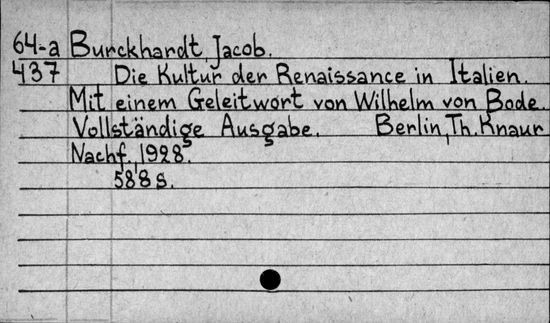 64-a Burckhardt, Jacob.
437 Die Kultur der Renaissance in Italien.
Mit einem Geleitwort von Wilhelm von Bode.
Vollständige Ausgabe. Berlin, Th. Knaur
Nachf., 1928.
588 s.